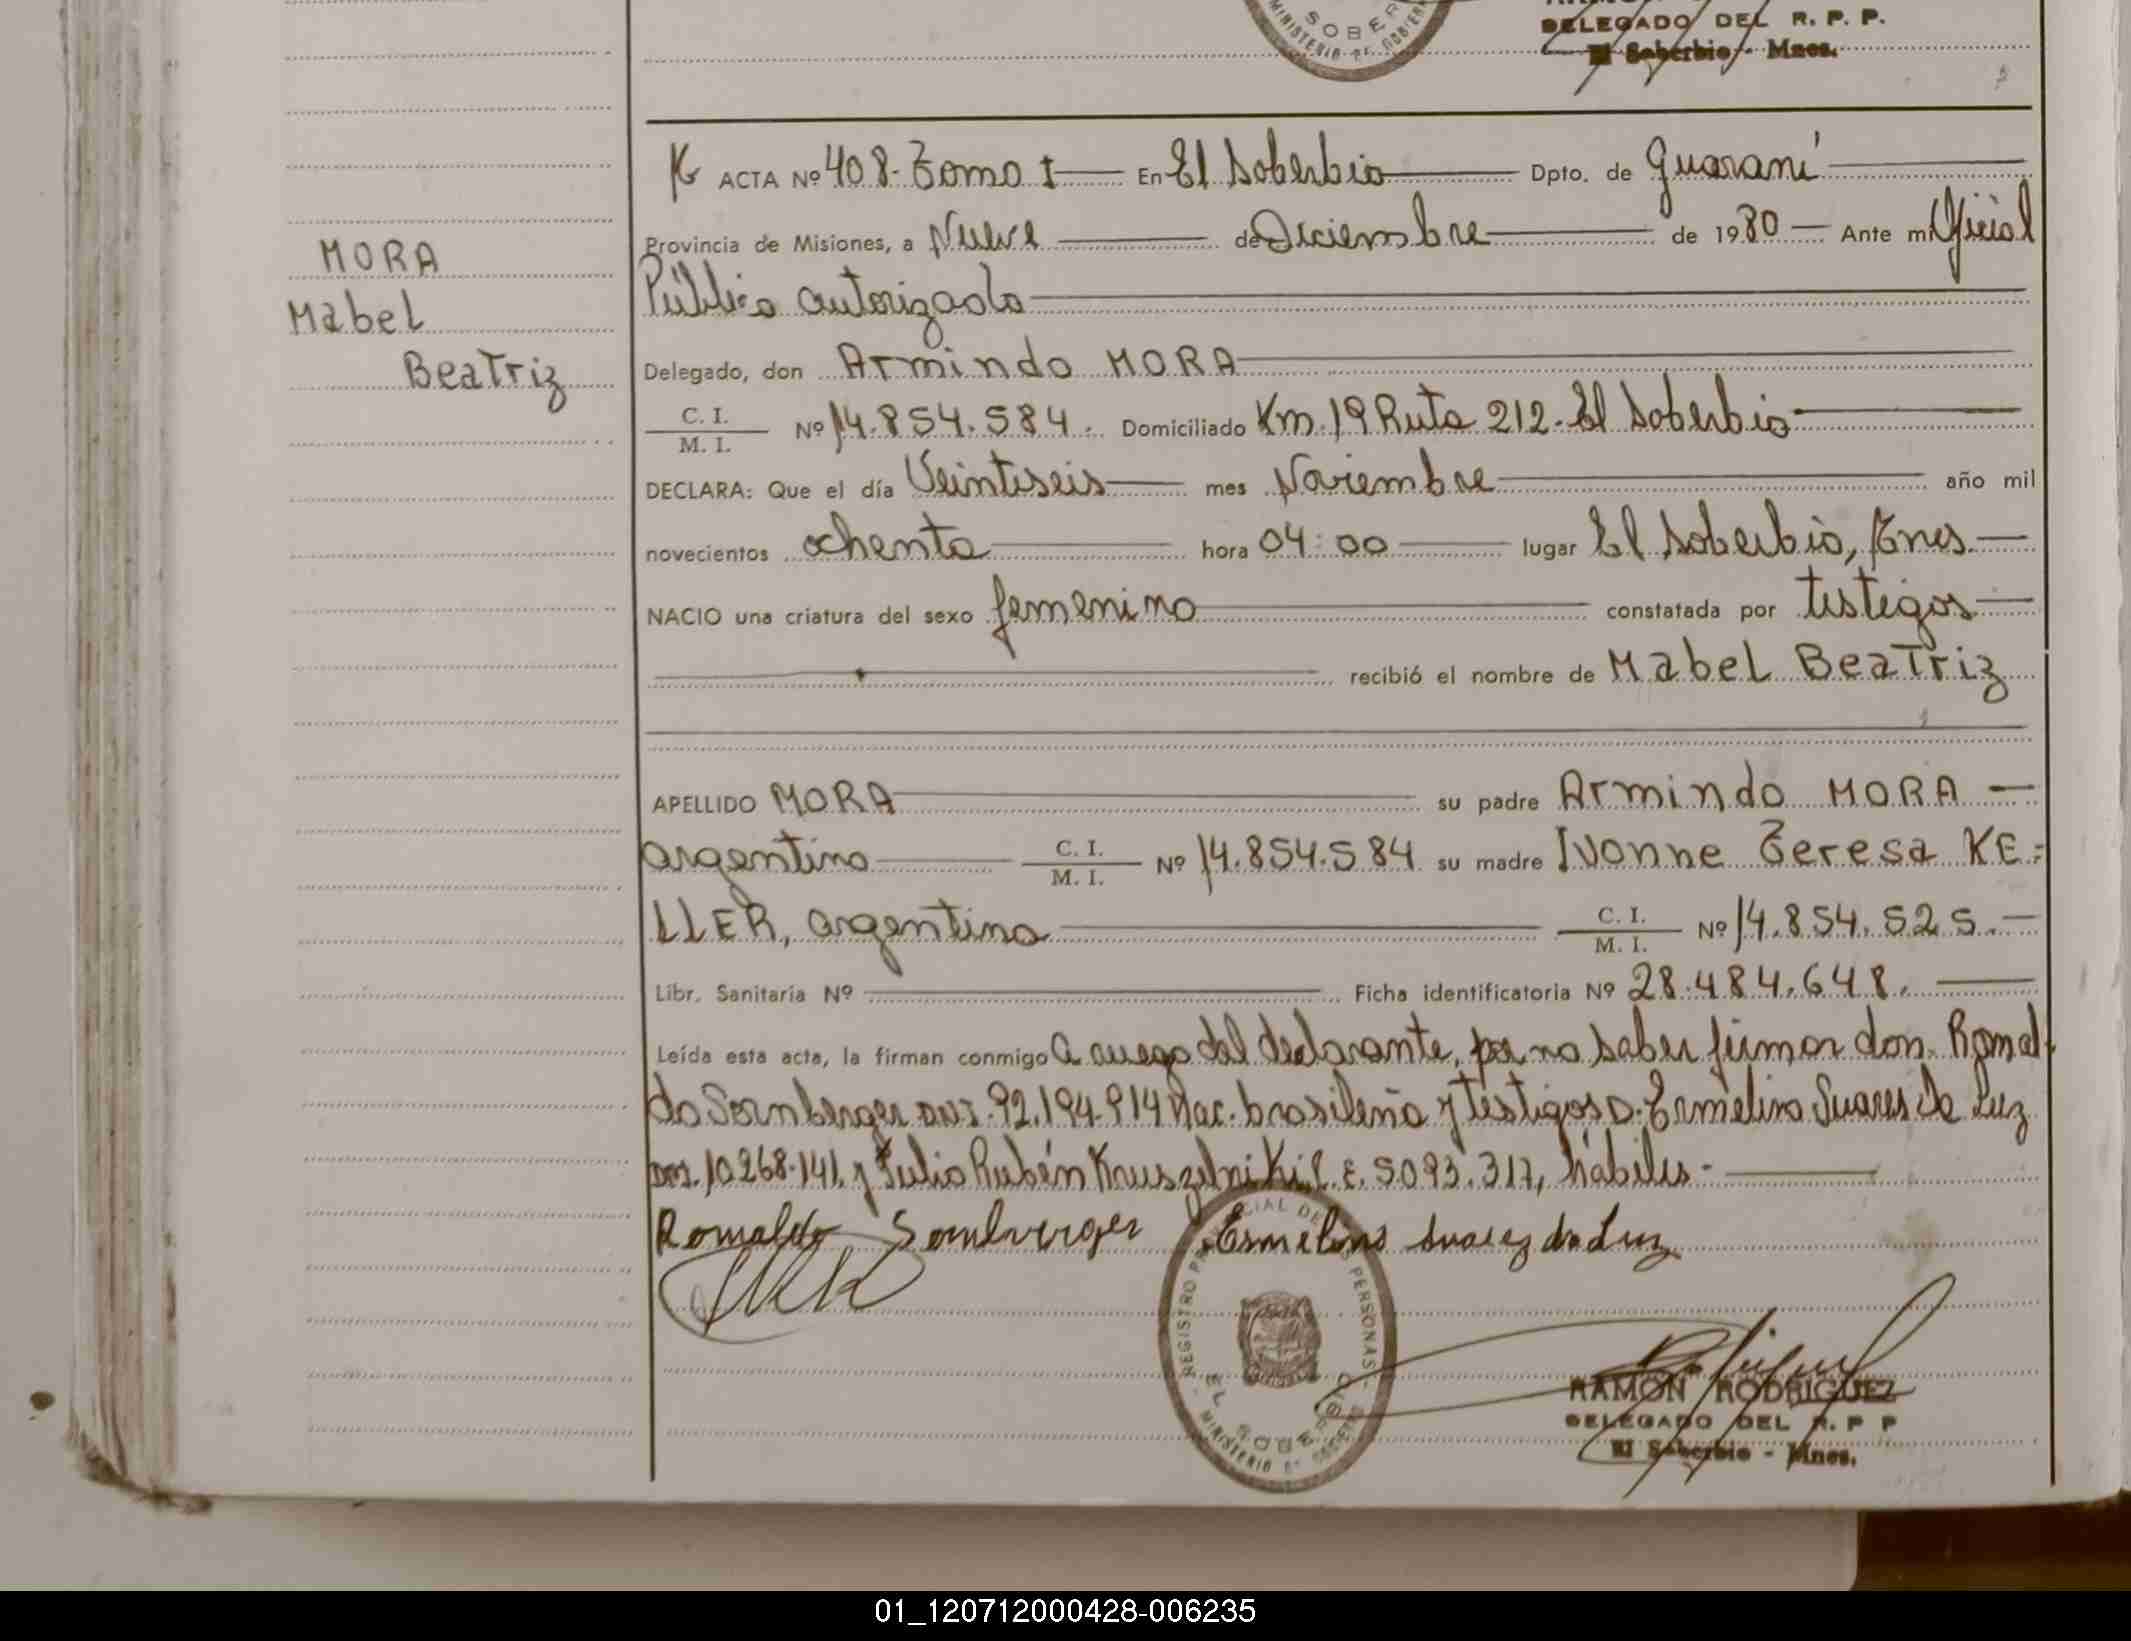 SOBER
MINISTERIO DE GOBIER
DELEGADO DEL R. P. P.
El Soberbio - Mnes.
ACTA Nº 408. Tomo I En El Soberbio Dpto. de Guaraní
Provincia de Misiones, a Nueve de Diciembre de 1980 Ante mi Oficial
Público autorizado
MORA
Mabel
Beatriz
Delegado, don Armindo MORA
C. I.
M. I. Nº 14.854.584. Domiciliado Km. 19 Ruta 212. El Soberbio
DECLARA: Que el día Veintiseis mes Noviembre año mil
novecientos ochenta hora 04:00 lugar El Soberbio, Mnes.
NACIO una criatura del sexo femenino constatada por testigos
recibió el nombre de Mabel Beatriz
APELLIDO MORA su padre Armindo MORA
argentino C. I. M. I. Nº 14.854.584 su madre Ivonne Teresa KE=
LLER, argentina C. I. M. I. Nº 14.854.525.
Libr. Sanitaria Nº Ficha identificatoria Nº 28.484.648.
Leída esta acta, la firman conmigo A ruego del declarante, por no saber firmar don Romal-
do Sornberger DNI. 92.194.914 Nac. brasileña y testigos D. Ermelino Suares Da Luz
DNI. 10.268.141. y Julio Rubén Kruszelniki L. E. 5093.317, hábiles.-
Romaldo Ermelino Suarez da Luz
REGISTRO PROVINCIAL DE LAS PERSONAS
EL SOBERBIO
MINISTERIO DE GOBIERNO
RAMON RODRIGUEZ
DELEGADO DEL R. P P
El Soberbio - Mnes.
01_120712000428-006235